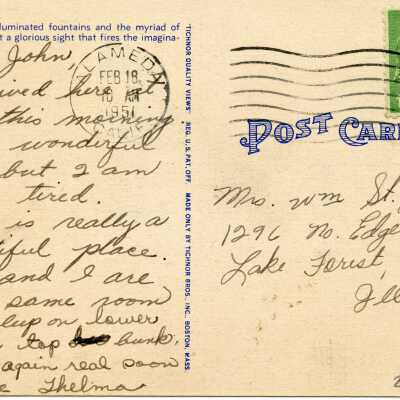 luminated fountains and the myriad of
t a glorious sight that fires the imagina-
John
ived here at
this morning
wonderful
but I am
tired.
is really a
iful place.
and I are
same room
lup on lower
top bunk.
again real soon
Thelma
ALAMEDA
FEB 18
10 AM
1951
CALIF.
"TICHNOR QUALITY VIEWS" REG. U. S. PAT. OFF. MADE ONLY BY TICHNOR BROS. INC., BOSTON, MASS.
POST CAR
Mrs. Wm St.
1296 No. Edge
Lake Forest,
Ill